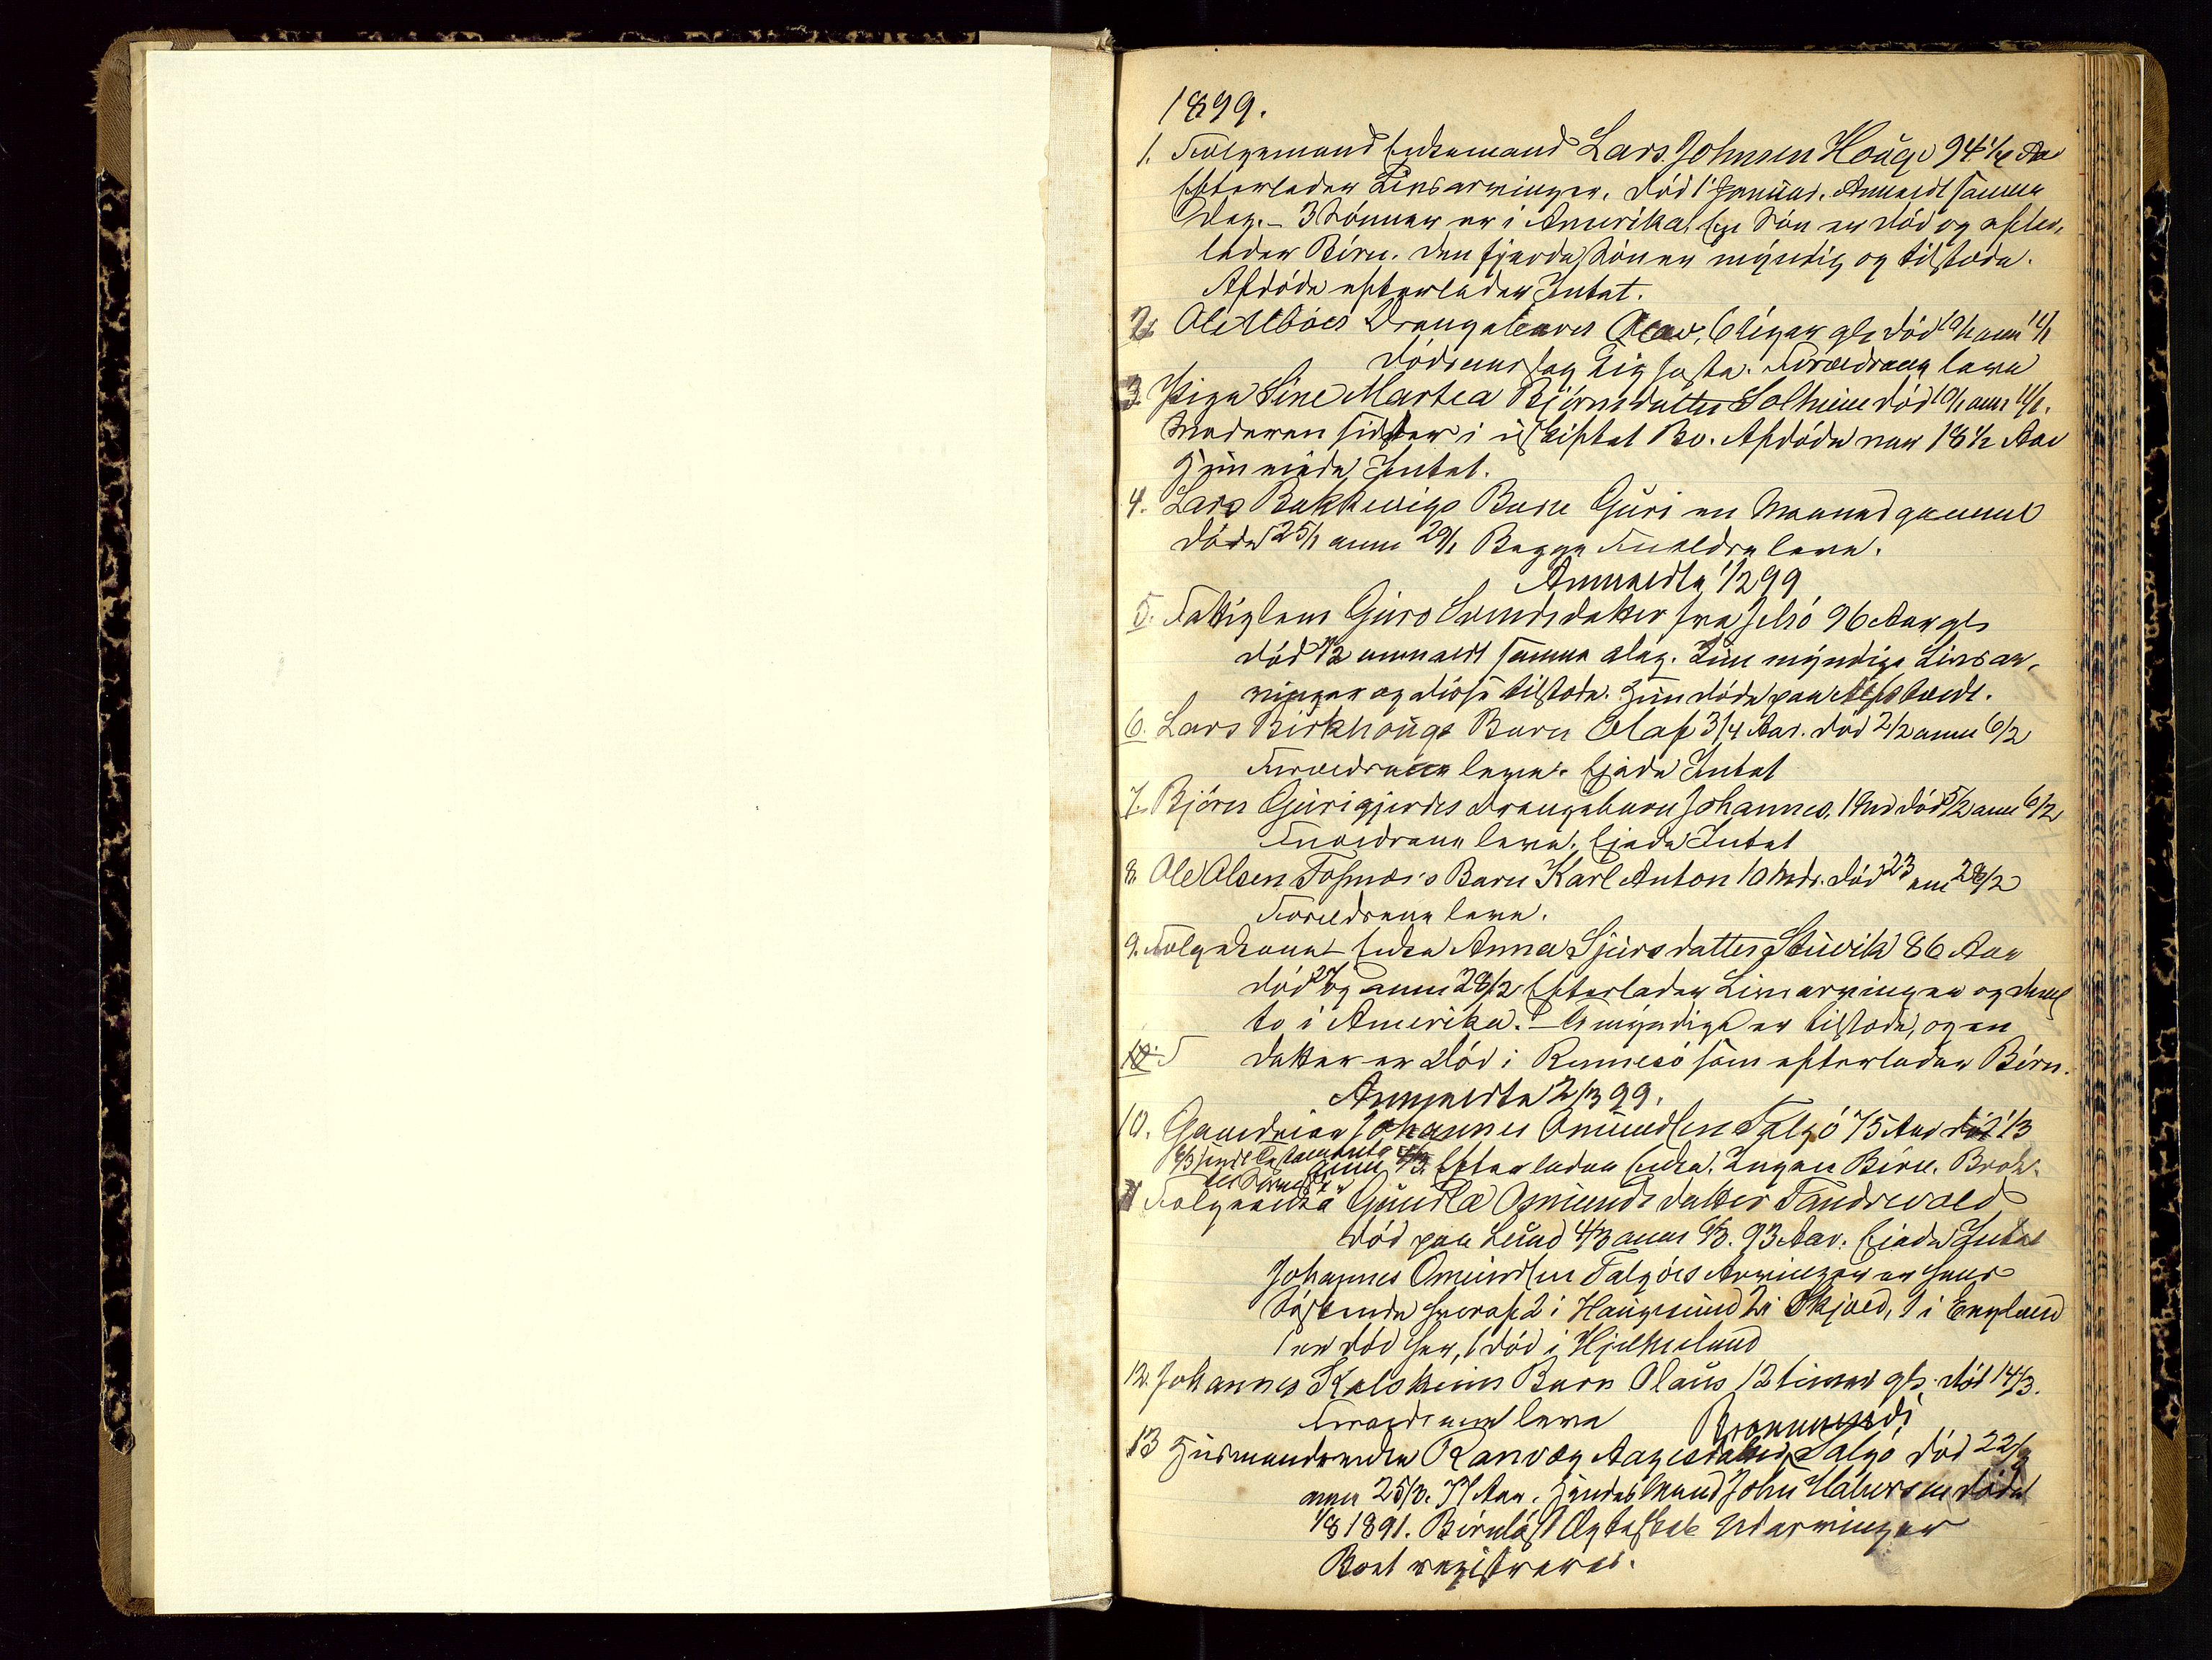 1899.
1. Folgemand Enkemand Lars Johnsen Houge 94 1/4 Aar
Efterlader Livsarvinger. Død 1 Januar. Anmeldt samme
Dag. – 3 Sønner er i Amerika. En Søn er død og efter-
lader Børn. Den fjerde Søn er myndig og tilstede.
Afdøde efterlader Intet.
2. Ole Drengebarn 6 Uger gl. død 10/1 anm 11/1
Forældrene leve
3. Pige Sine Martea Bjørnsdatter Solheim død 10/1 anm 11/1.
Moderen sidder i uskiftet Bo. Afdøde var 18 1/2 Aar
Hun eiede Intet.
4. Lars Bakkevigs Barn Guri en Maaned gammel
døde 25/1 anm 29/1 Begge Forældre leve.
Anmeldte 1/2 99
5. Fattiglem Guro Svendsdatter fra Jelsø 96 Aar gl.
død 1/2 anmeldt samme Dag. Kun myndige Livsar-
vinger og disse tilstede. Hun døde paa
6. Lars Birkhougs Barn Olaf 3/4 Aar. død 2/2 anm 6/2
Forældrene leve. Eiede Intet
7. Bjørn Gurigjerdes Drengebarn Johannes, 1 Md død 5/2 anm 6/2
Forældrene leve. Eiede Intet
8. Ole Olsen Barn Karl Anton 10 Mdr. død 23 anm 28/2
Forældrene leve.
9. Folgekone Enke Anna Sjursdatter 86 Aar
død 27/2 anm 28/2 Efterlader Livsarvinger og deraf
to i Amerika. – myndige er tilstede, og en
10. F Datter er død i Rennesø som efterlader Børn.
Anmeldte 2/3 99.
10. Gaardeier Johannes Omundsen Talgø 75 Aar død 1/3
anm Efterlader Enke. Ingen Børn.
Folgeenke Gunilla Osmundsdatter Tandrevold
død paa Lund 4/3 anm 6/3. 93 Aar. Eiede Intet
Johannes Omundsen Talgøes Arvinger er hans
Søskende hvoraf 2 i Haugesund 2 i Skjold, 1 i England
1 er død her, 1 død i Hjelmeland
12. Johannes Kalsheims Barn Olaus 12 timer gl. død 14/3.
Forældrene leve
13 Husmandsenke Ranveg Aagesdatter Talgø død 22/3
anm 25/3. 77 Aar. Hendes Mand John Halvorsen døde
1/8 1891. Barnløst Ægteskab Udarvinger
Boet registreres.